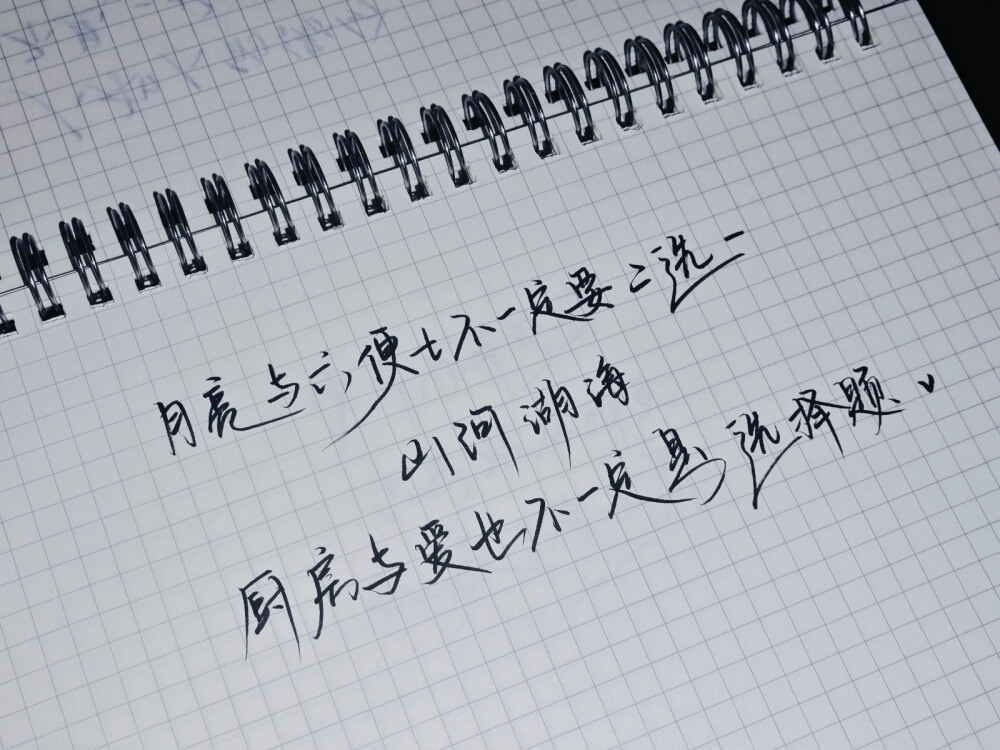 月亮与六便士不一定要二选一
山河湖海
厨房与爱也不一定是选择题、